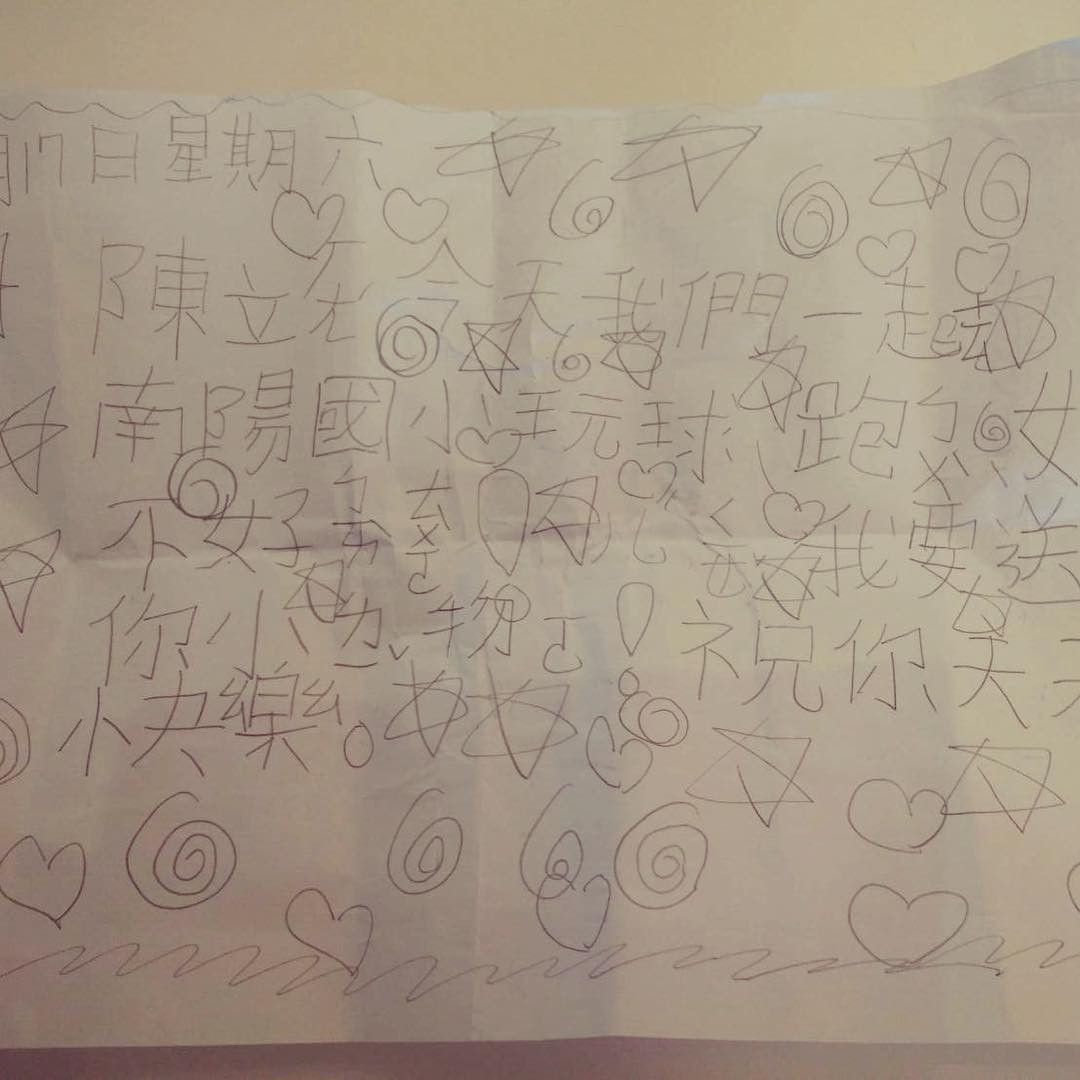 月17日星期六
陳立 今天我們一起去
南陽國小玩球 跑 女
不好 我要送
你小 物 ! 祝你天天
快樂。